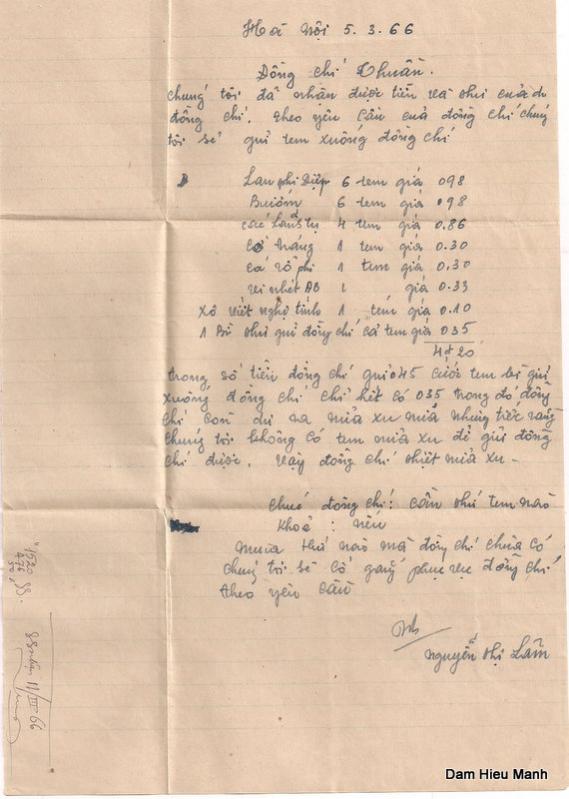 Hà Nội 5.3.66
Đồng chí Thuần.
chúng tôi đã nhận được tiền và thư của
đồng chí. theo yêu cầu của đồng chí chúng
tôi sẽ gửi tem xuống đồng chí
Lan phi Điệp 6 tem giá 098
Bướm 6 tem giá 098
4 tem giá 0.86
1 tem giá 0.30
cá rô phi 1 tem giá 0.30
1 giá 0.33
Xô viết nghệ tĩnh 1 tem giá 0.10
1 Bì thư gửi đồng chí cả tem giá 035
4đ20
trong số tiền đồng chí gửi 045 cước tem bì gửi
xuống đồng chí chỉ hết có 035 trong đó đồng
chí còn dư ra nửa xu nữa nhưng tiếc rằng
chúng tôi không có tem nửa xu để gửi đồng
chí được. vậy đồng chí thiệt nửa xu -
chúc đồng chí: cần thứ tem nào
khoẻ: nếu
mua thứ nào mà đồng chí chưa có
chúng tôi sẽ cố gắng phục vụ đồng chí
theo yêu cầu
nguyễn thị Lâm
11/III 66
Dam Hieu Manh